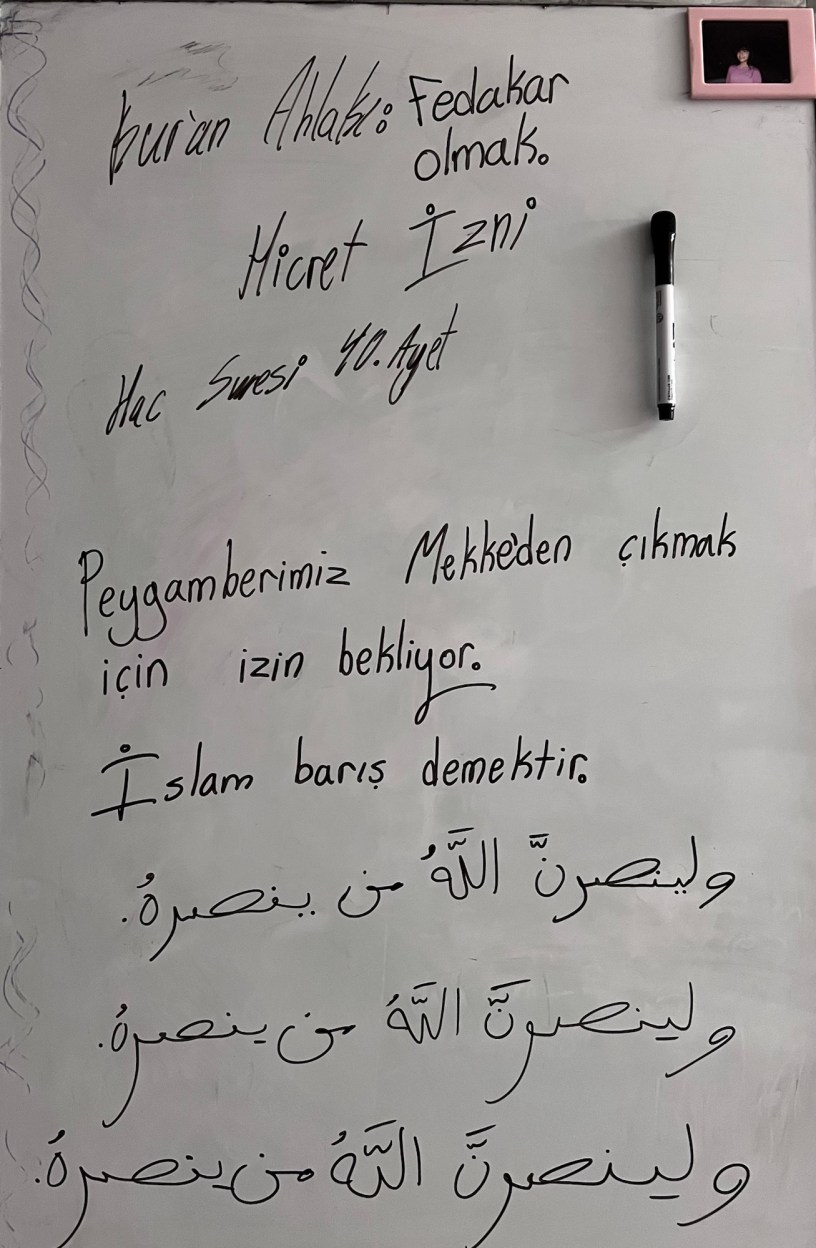 Kur'an Ahlakı: Fedakar
olmak.
Hicret İzni
Hac Suresi 40. Ayet
Peygamberimiz Mekke'den çıkmak
için izin bekliyor.
İslam barış demektir.
ولينصرنَّ اللَّهُ من ينصرهُ.
ولينصرنَّ اللَّهُ من ينصرهُ.
ولينصرنَّ اللَّهُ من ينصرهُ.